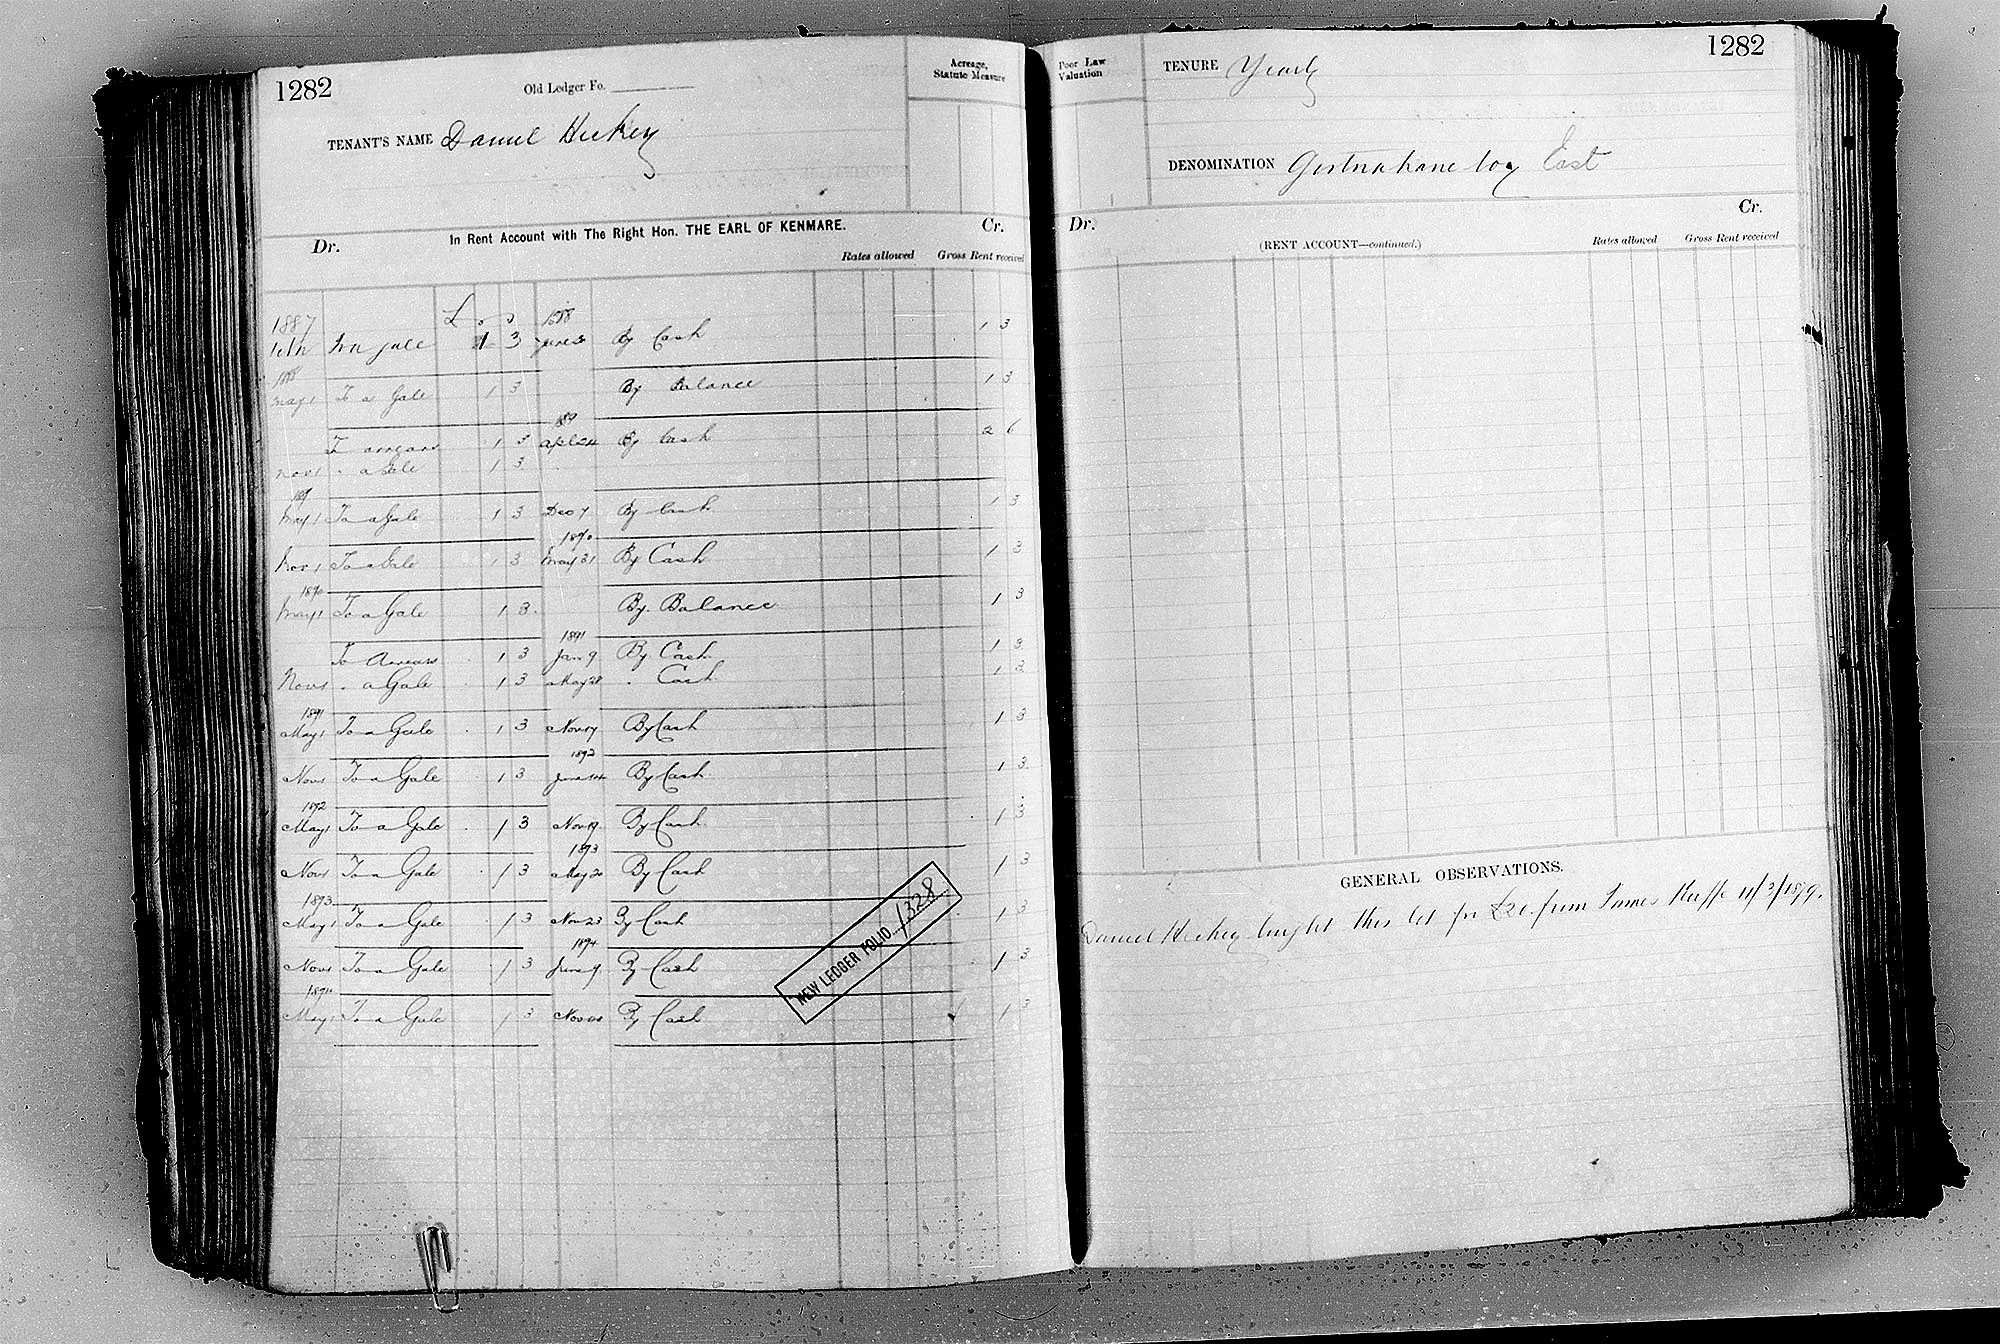 1282
Old Ledger Fo.
Acreage,
Statute Measure
TENANT'S NAME Daniel Hickey
In Rent Account with The Right Hon. THE EARL OF KENMARE.
Dr. Cr.
Rates allowed Gross Rent received
£ s d
1887 1888
gale 1 3 June By Cash 1 3
1888
May 1 To a Gale 1 3 By Balance 1 3
1889
To arrears 1 3 Apl 24 By Cash 2 6
Nov 1 " a Gale 1 3
1889
May 1 To a Gale 1 3 Dec 7 By Cash 1 3
1890
Nov 1 To a Gale 1 3 May 31 By Cash 1 3
1890
May 1 To a Gale 1 3 By Balance 1 3
1891
To Arrears 1 3 Jan 9 By Cash 1 3
Nov 1 " a Gale 1 3 May 28 " Cash 1 3
1891
May 1 To a Gale 1 3 Nov 17 By Cash 1 3
1892
Nov 1 To a Gale 1 3 June 14 By Cash 1 3
1892
May 1 To a Gale 1 3 Nov 19 By Cash 1 3
1893
Nov 1 To a Gale 1 3 May 20 By Cash 1 3
1893
May 1 To a Gale 1 3 Nov 23 By Cash 1 3
1894
Nov 1 To a Gale 1 3 June 9 By Cash 1 3
1894
May 1 To a Gale 1 3 Nov By Cash 1 3
NEW LEDGER FOLIO 1328
1282
Poor Law
Valuation
TENURE Yearly
DENOMINATION Gortnahaneboy East
Dr. Cr.
(RENT ACCOUNT—continued.)
Rates allowed Gross Rent received
GENERAL OBSERVATIONS.
Daniel Hickey bought this lot for £20 from James Keeffe 11/3/1879.